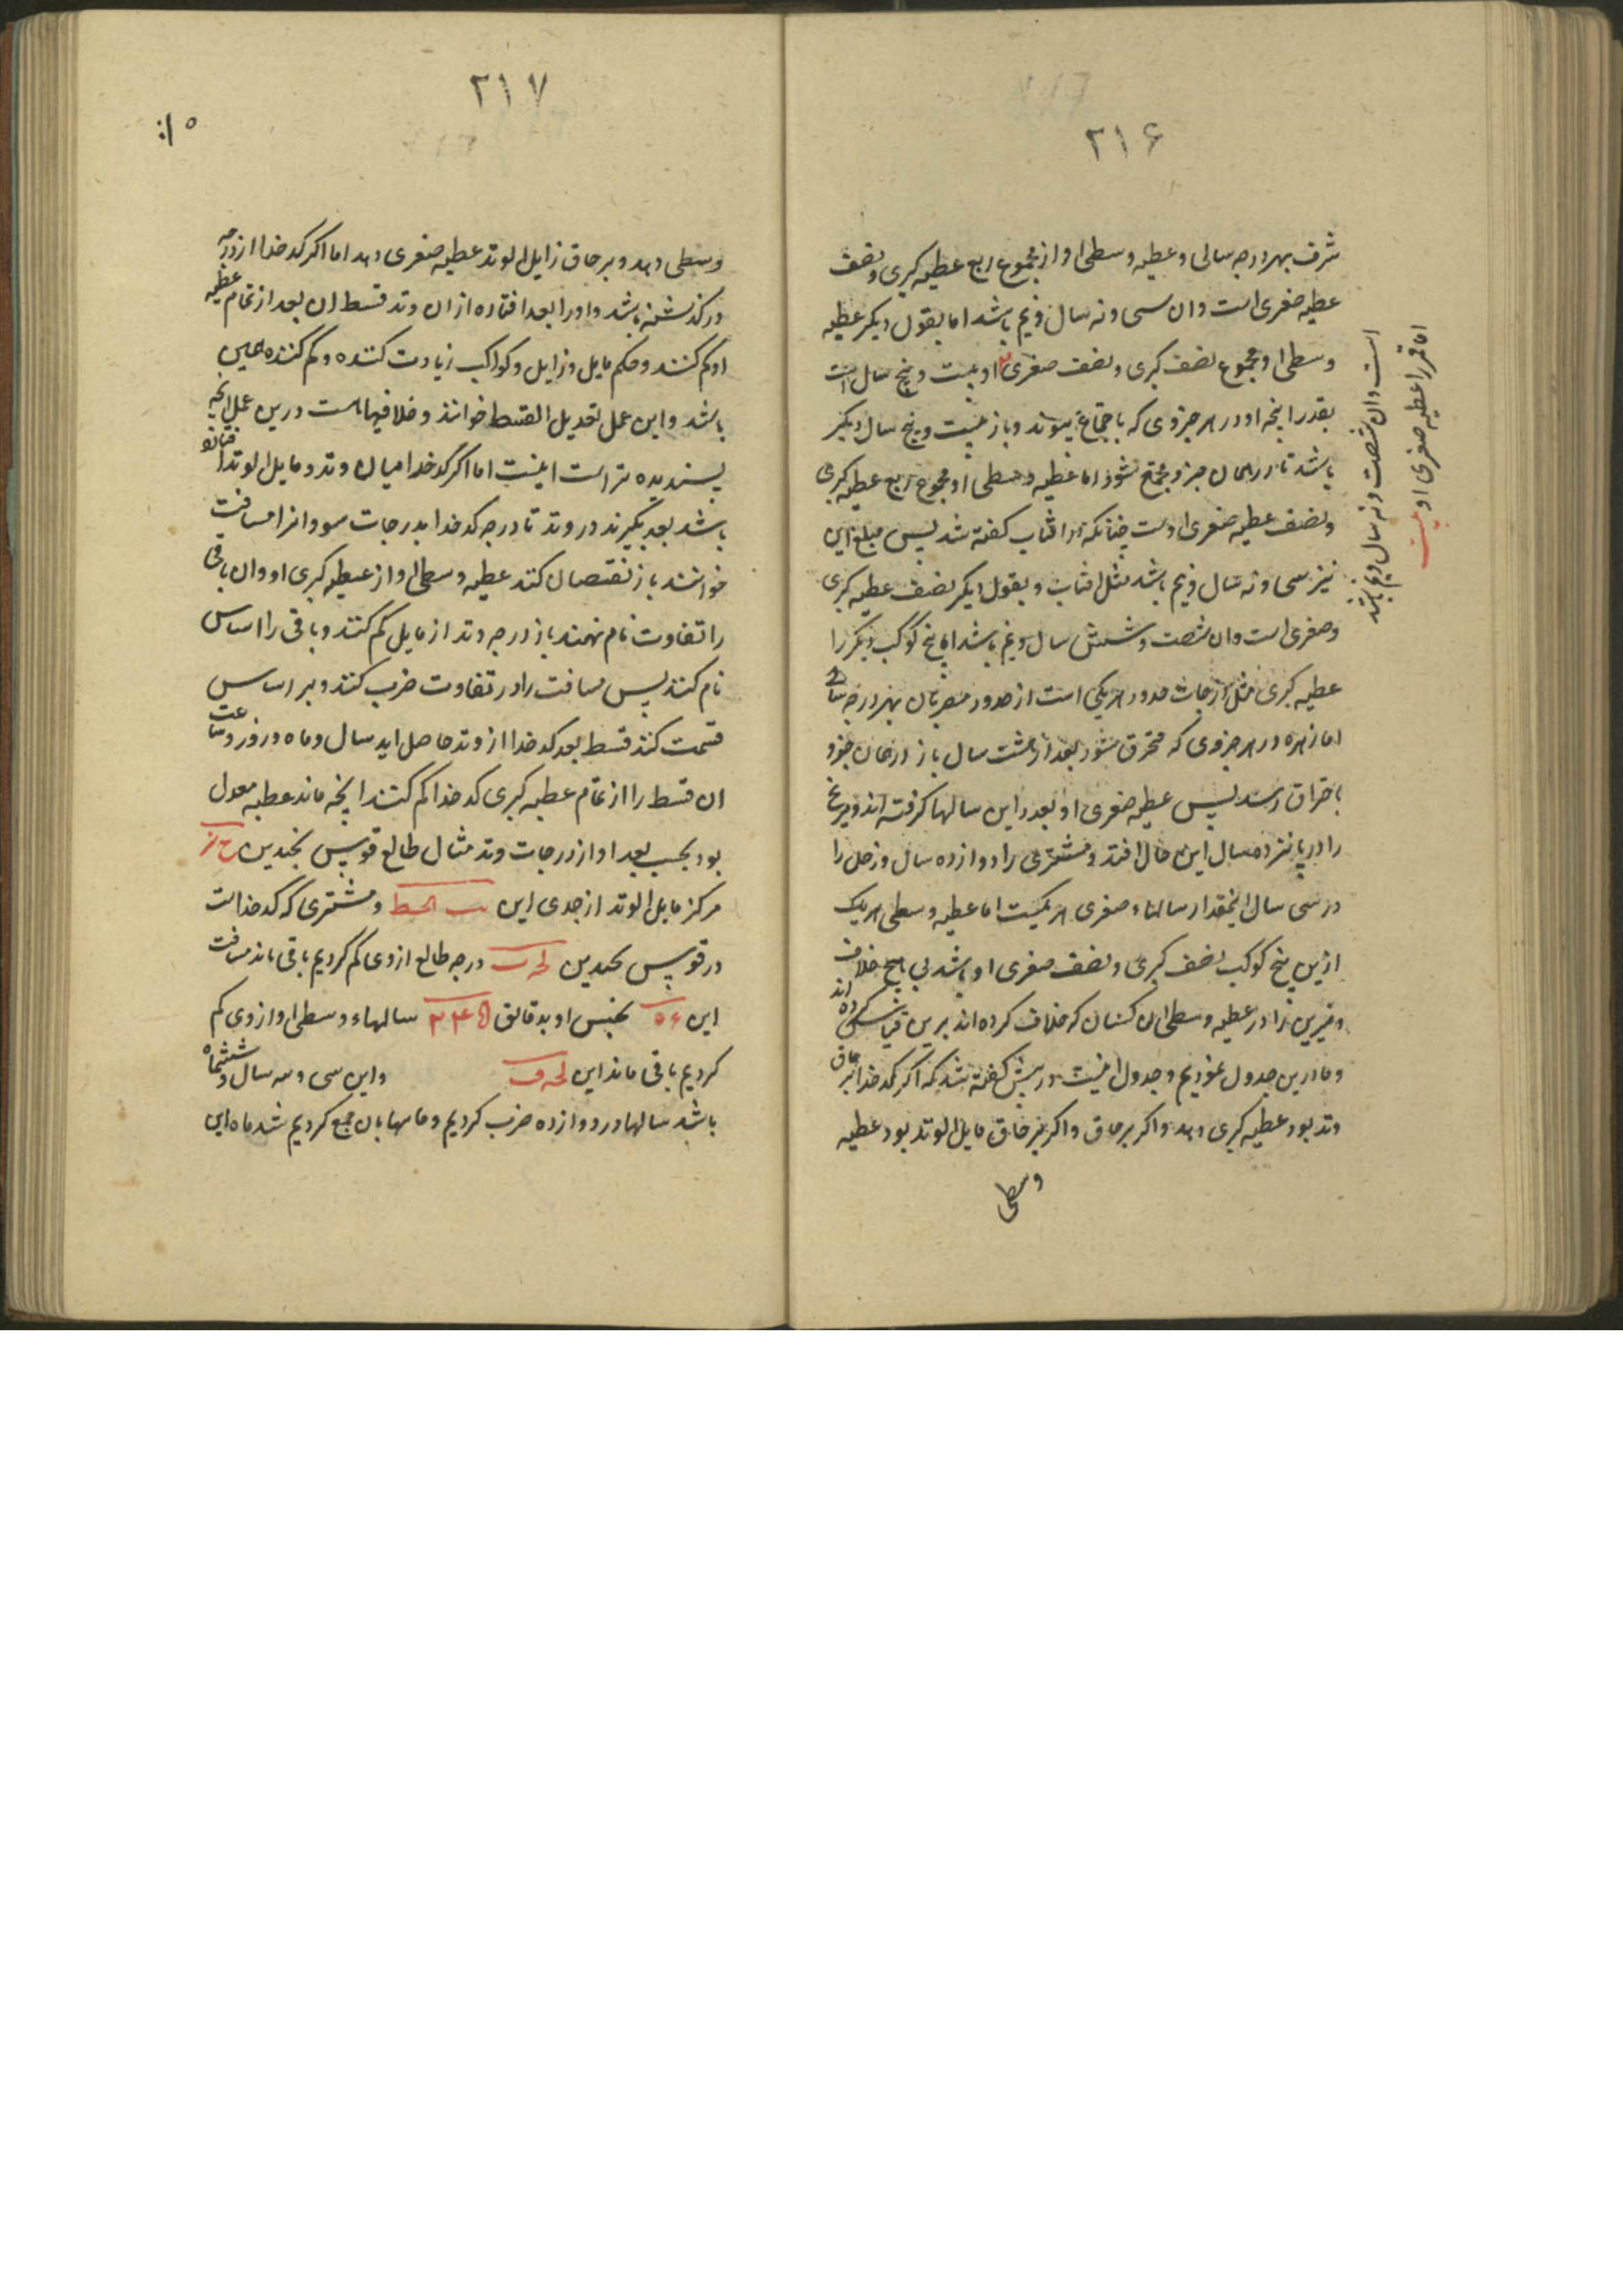 ۲۱۶
شرف بهر درجه سالی و عطیه وسطی او از مجموع ربع عطیه کبری و نصف
عطیه صغری است و ان سی و نه سال و نیم باشد اما بقول دیکر عطیه
وسطی او مجموع نصف کبری و نصف صغری او بیست و پنج سال است
بقدر انچه او در هر جزوی که باجتماع پیوندد باز بیست و پنج سال دیکر
باشد تا در همان جزو مجتمع شود اما عطیه وسطی او مجموع ربع عطیه کبری
و نصف عطیه صغری اوست چنانکه در افتاب کفته شد پس مبلغ این
نیز سی و نه سال و نیم باشد مثل افتاب و بقول دیکر نصف عطیه کبری
و صغری است و ان شصت و شش سال و نیم باشد اما پنج کوکب دیکر را
عطیه کبری مثل درجات حدود هر یکی است از حدود مصریان بهر درجه سالی
اما زهره در هر جزوی که محترق شود بعد از هشت سال باز در همان جزو
باحتراق رسد پس عطیه صغری او بعدد این سالها کرفته اند و مریخ
را در پانزده سال این حال افتد و مشتری را دوازده سال و زحل را
در سی سال اینمقدار سالهاء صغری هر یکیست اما عطیه وسطی هر یک
ازین پنج کوکب نصف کبری و نصف صغری او باشد بی هیچ خلاف
و نیرین را در عطیه وسطی ان کسان که خلاف کرده اند برین قیاس کرده اند
و ما درین جدول نمودیم و جدول اینست در پیش کفته شد که اکر کدخدا بر حاق
وتد بود عطیه کبری دهد و اکر بر حاق و اکر بر حاق مایل الوتد بود عطیه
وسطی
اما قمر را عطیه صغری او بیست
است و ان شصت و نه سال و نیم باشد
۲۱۷
وسطی دهد و بر حاق زایل الوتد عطیه صغری دهد اما اکر کدخدا از درجه
در کذشته باشد و او را بعد افتاده از ان وتد قسط ان بعد از تمام عطیه
او کم کنند و حکم مایل و زایل و کواکب زیادت کننده و کم کننده همین
باشد و این عمل تعدیل القسط خوانند و خلافیهاست درین عمل انچه
پسندیده تر است اینست اما اکر کدخدا میان وتد و مایل الوتد افتاده
باشد بعد بکیرند در وتد تا درجه کدخدا بدرجات سوا و انرا مسافت
خوانند باز نقصان کنند عطیه وسطی او از عطیه کبری او و ان باقی
را تفاوت نام نهند باز درجه وتد از مایل کم کنند و باقی را اساس
نام کنند پس مسافت را در تفاوت ضرب کنند و بر اساس
قسمت کنند قسط بعد کدخدا از وتد حاصل اید سال و ماه و روز و ساعت
ان قسط را از تمام عطیه کبری کدخدا کم کنند انچه ماند عطیه معدل
بود بحسب بعد او از درجات وتد مثال طالع قوس بچندین
مرکز مایل الوتد از جدی این و مشتری که کدخداست
در قوس بچندین درجه طالع ازوی کم کردیم باقی ماند مسافت
این بجنس او بدقایق سالهاء وسطی او ازوی کم
کردیم باقی ماند این و این سی و سه سال و ششماه
باشد سالها در دوازده ضرب کردیم و ماهها بان جمع کردیم شد ماه این